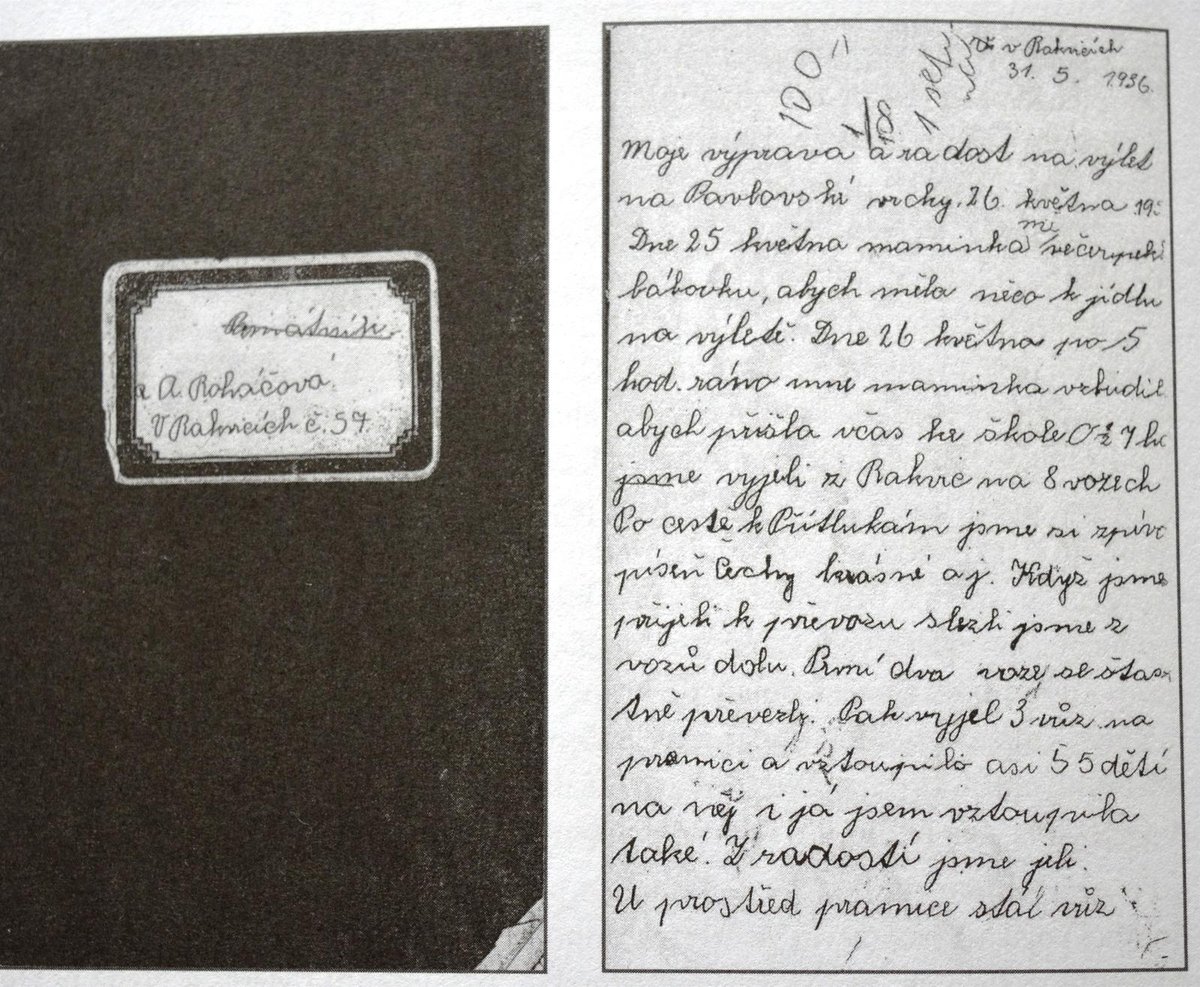 Památník
A. Roháčová
V Rakvicích č. 57.
v Rakvicích
31. 5. 1936.
100
1
100
1 sešit
Moje výprava a radost na výlet
na Pavlovské vrchy. 26. května 19
Dne 25 května maminka mě večer pekl
bábovku, abych měla něco k jídlu
na výletě. Dne 26 května po 5
hod. ráno mne maminka vzbudil
abych přišla včas ke škole O ½ 7 h
jsme vyjeli z Rakvic na 8 vozech
Po cestě k Přítlukám jsme si zpíva
píseň Čechy krásné a j. Když jsme
přijeli k převozu slezli jsme z
vozů dolu. První dva voze se šťas
tně převezly. Pak vyjel 3 vůz na
pramici a vztoupilo asi 55 dětí
na něj i já jsem vztoupila
také. Z radostí jsme jeli.
U prostřed pramice stál vůz